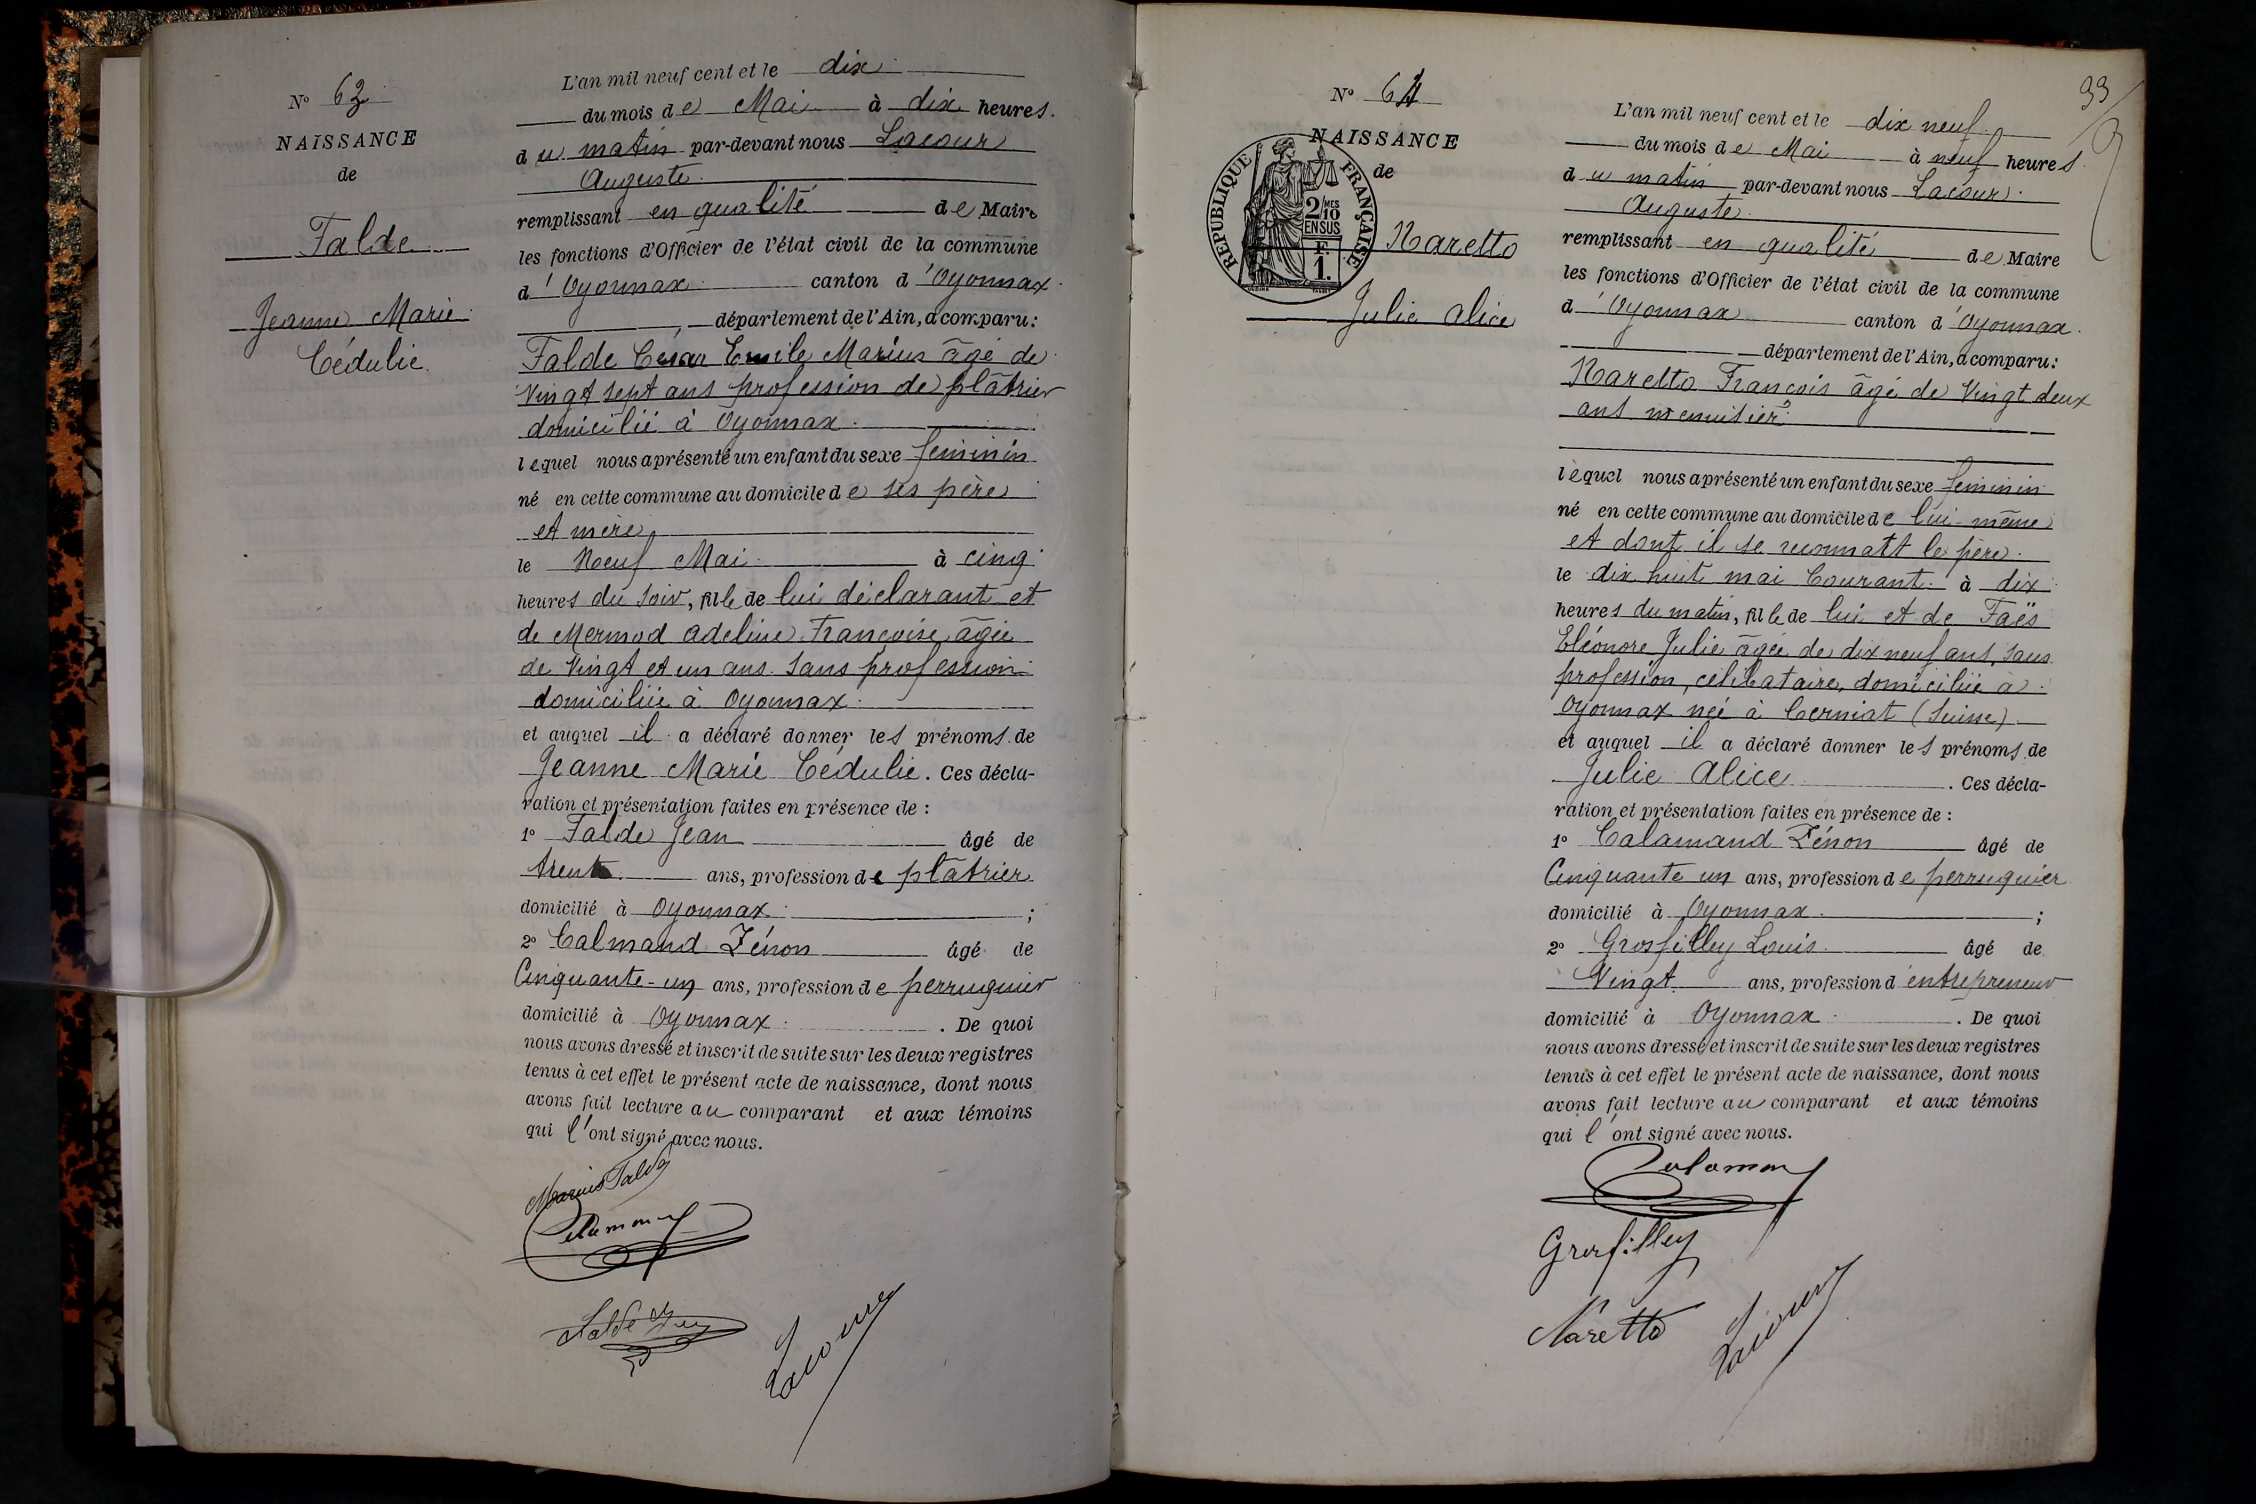 N° 63
NAISSANCE
de
Falde
Jeanne Marie
Cédulie.
L'an mil neuf cent et le dix
du mois de Mai à dix heures.
du matin par-devant nous Lacour
Auguste
remplissant en qualité de Maire
les fonctions d'Officier de l'état civil de la commune
d'Oyonnax canton d'Oyonnax.
département de l'Ain, a comparu:
Falde César Emile Marius âgé de
Vingt sept ans profession de plâtrier
domicilié à Oyonnax.
lequel nous a présenté un enfant du sexe feminin
né en cette commune au domicile de ses père
et mère
le Neuf Mai à cinq
heures du soir, fille de lui déclarant et
de Mermod Adeline Françoise âgée
de Vingt et un ans sans profession
domiciliée à Oyonnax.
et auquel il a déclaré donner les prénoms de
Jeanne Marie Cédulie. Ces décla-
ration et présentation faites en présence de :
1° Falde Jean âgé de
trente ans, profession de plâtrier
domicilié à Oyonnax ;
2° Calmand Zénon âgé de
Cinquante-un ans, profession de perruquier
domicilié à Oyonnax. De quoi
nous avons dressé et inscrit de suite sur les deux registres
tenus à cet effet le présent acte de naissance, dont nous
avons fait lecture au comparant et aux témoins
qui l'ont signé avec nous.
Marius Falde
Calamand
Falde
Lacour
33
N° 64
NAISSANCE
de
RÉPUBLIQUE FRANÇAISE
2/10 MES
EN SUS
F.
1.
Naretto
Julie Alice
L'an mil neuf cent et le dix neuf
du mois de Mai à neuf heures
du matin par-devant nous Lacour
Auguste.
remplissant en qualité de Maire
les fonctions d'Officier de l'état civil de la commune
d'Oyonnax canton d'Oyonnax.
département de l'Ain, a comparu:
Naretto François âgé de Vingt deux
ans menuisier
lequel nous a présenté un enfant du sexe feminin
né en cette commune au domicile de lui-même
et dont il se reconnait le père.
le dix huit mai Courant à dix
heures du matin, fille de lui et de Faës
Eléonore Julie âgée de dix neuf ans, sans
profession, célibataire, domiciliée à
Oyonnax née à Cerniat (Suisse)
et auquel il a déclaré donner les prénoms de
Julie Alice. Ces décla-
ration et présentation faites en présence de :
1° Calamand Zénon âgé de
Cinquante un ans, profession de perruquier
domicilié à Oyonnax ;
2° Grosfilley Louis âgé de
Vingt ans, profession d'entrepreneur
domicilié à Oyonnax. De quoi
nous avons dressé et inscrit de suite sur les deux registres
tenus à cet effet le présent acte de naissance, dont nous
avons fait lecture au comparant et aux témoins
qui l'ont signé avec nous.
Calamand
Grosfilley
Naretto
Lacour